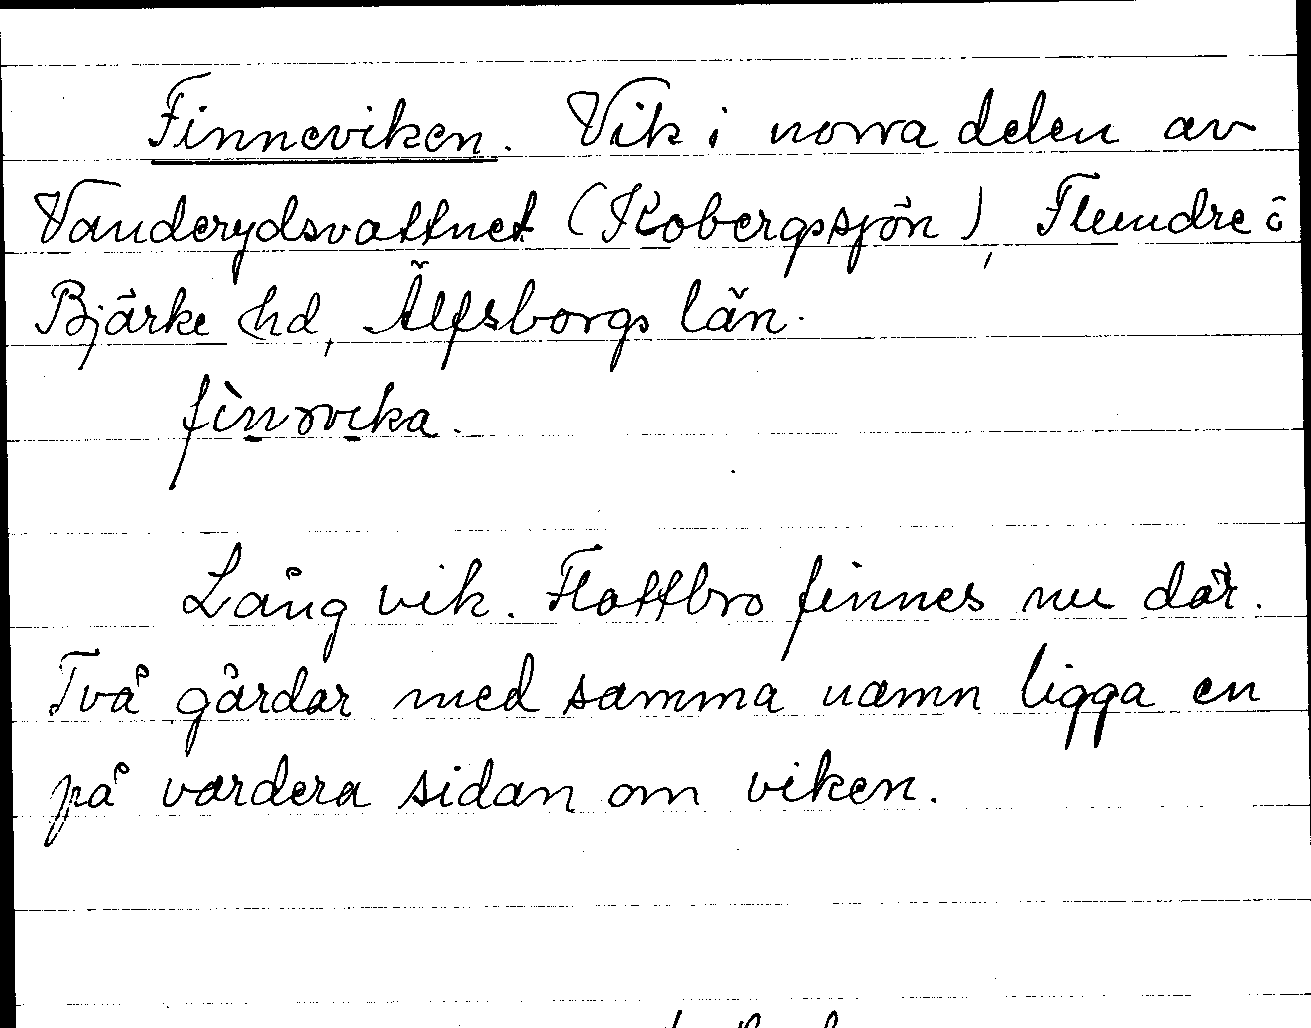 Finneviken. Vik i norra delen av
Vanderydsvattnet (Kobergssjön), Flundre ō
Bjärke hd, Älfsborgs län.
fìnəvika.
Lång vik. Flottbro finnes nu där.
Två gårdar med samma namn ligga en
på vardera sidan om viken.